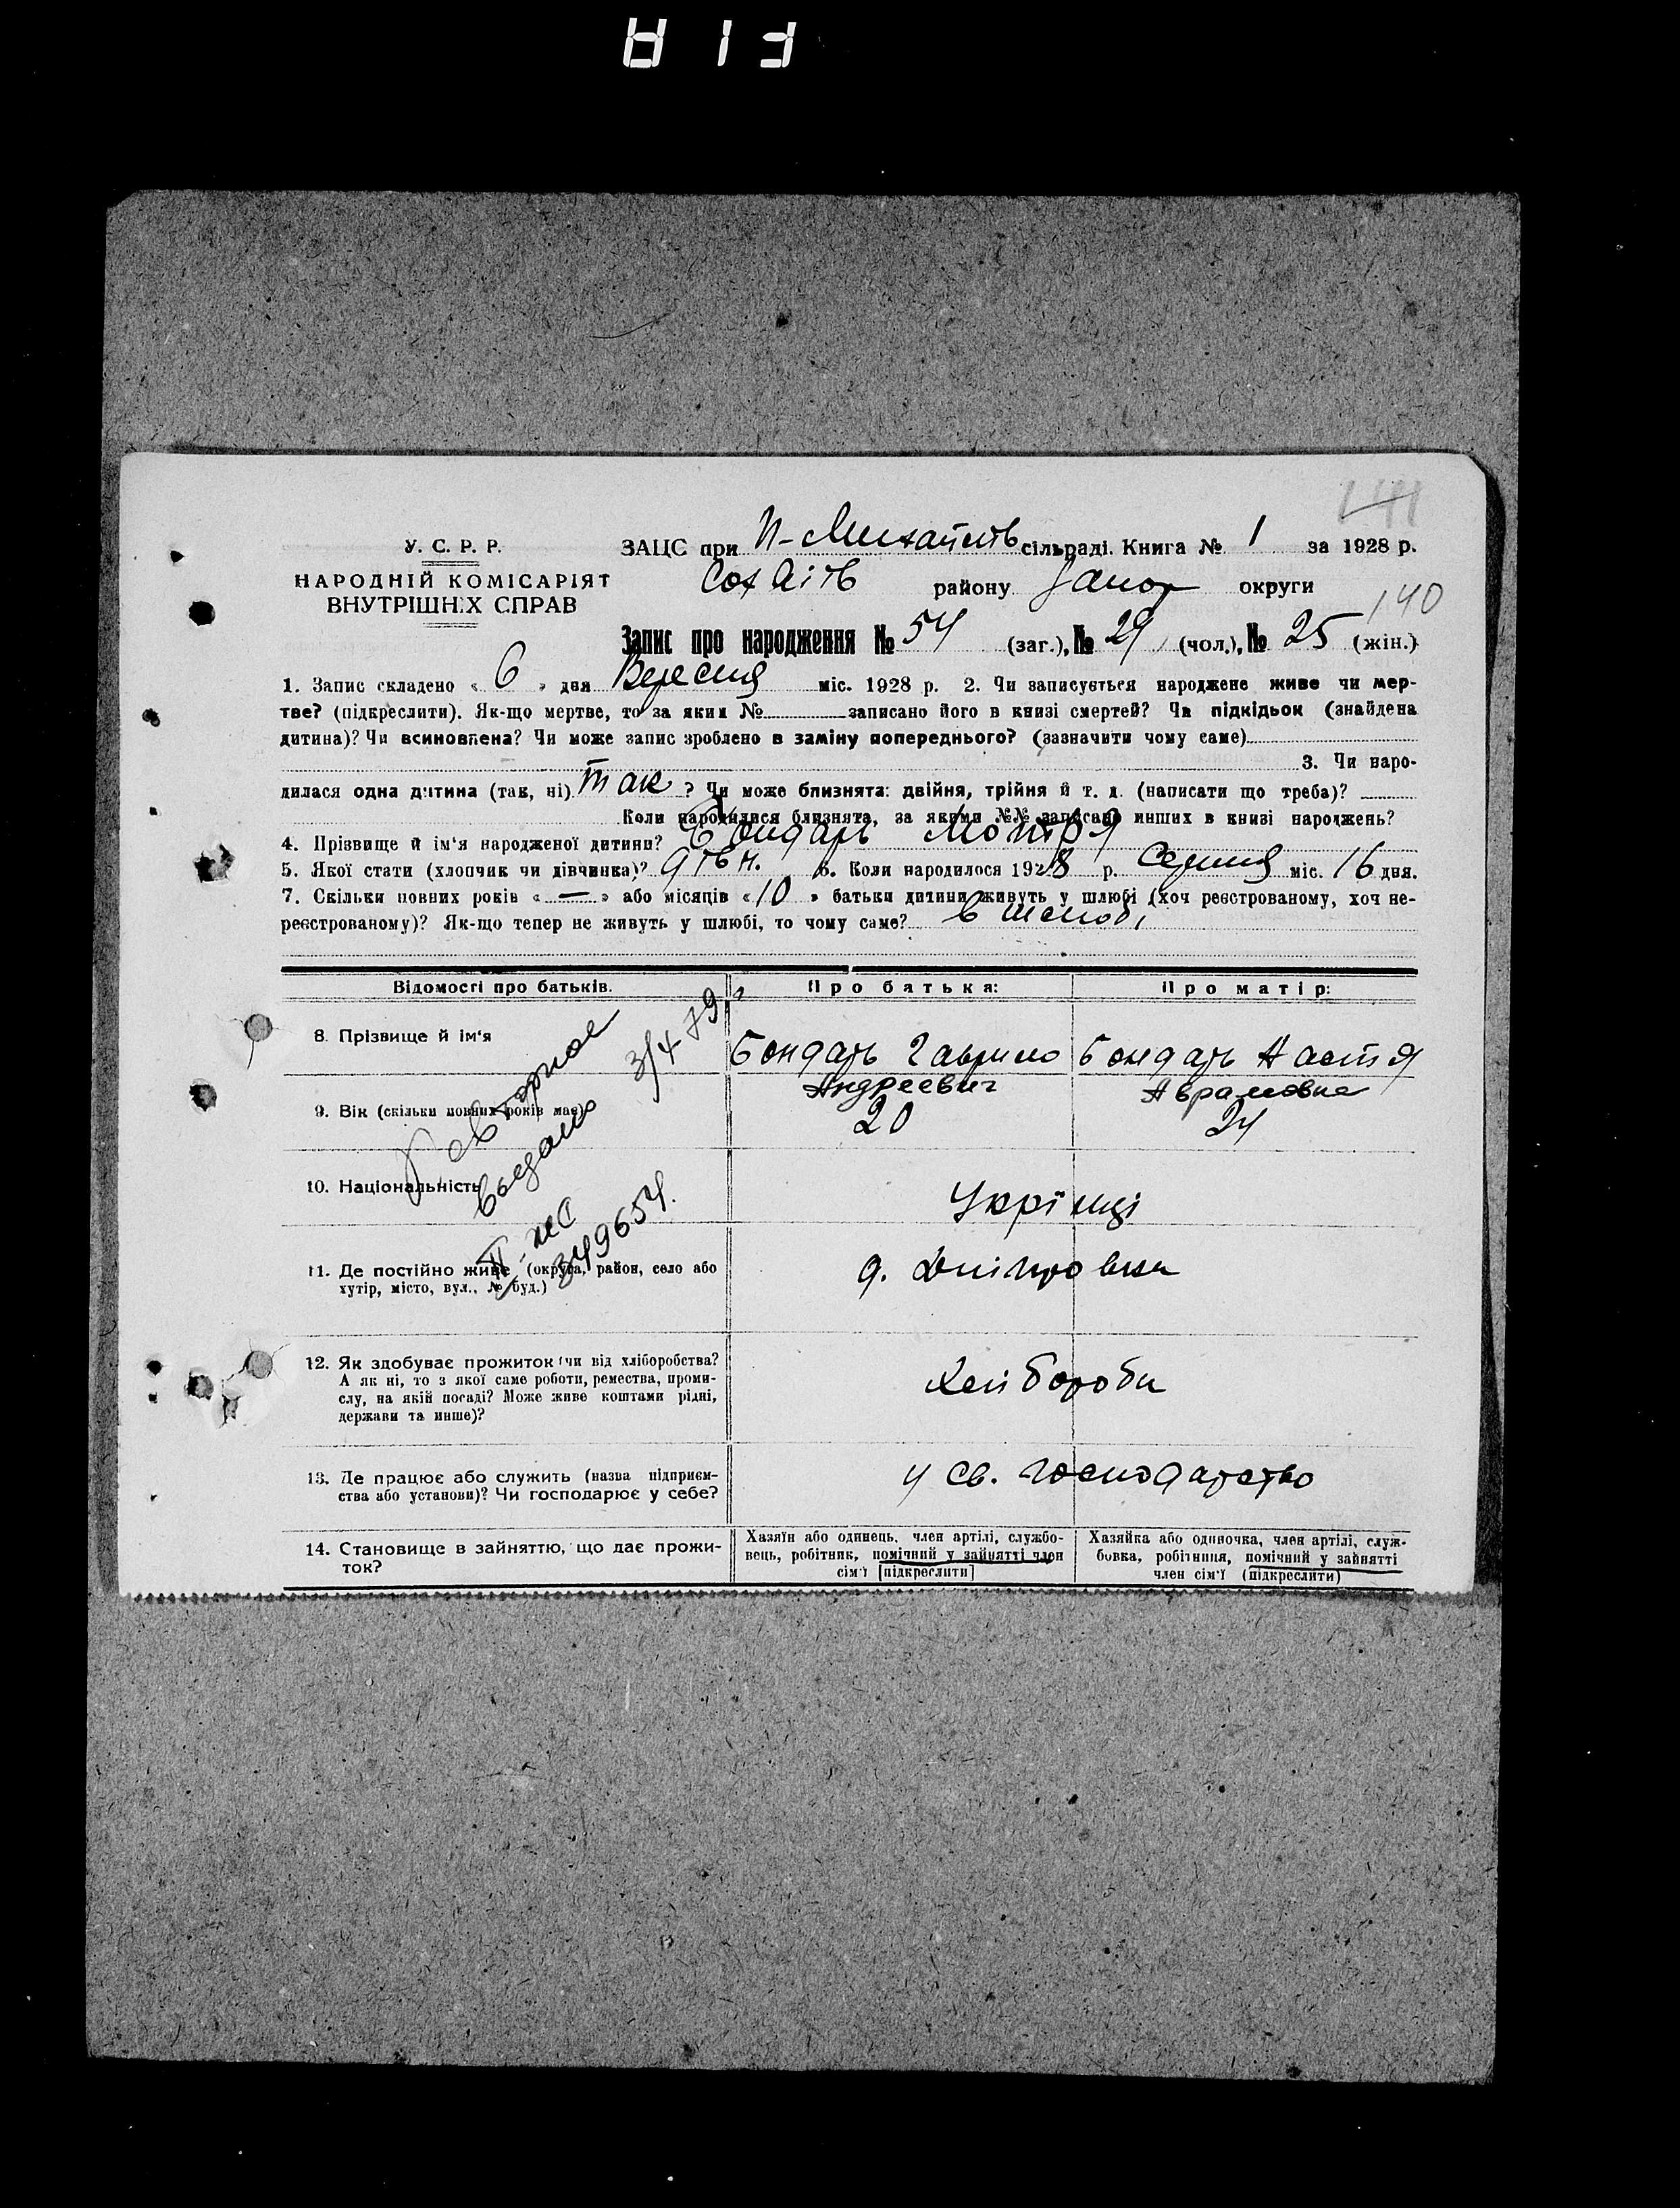 У. С. Р. Р.
НАРОДНІЙ КОМІСАРІЯТ
ВНУТРІШНІХ СПРАВ
ЗАЦС при сільраді. Книга № 1 за 1928 р.
району Запор округи
140
Запис про народження № 54 (заг.), № 29 (чол.), № 25 (жін.)
1. Запис складено « 6 » дня Вересня міс. 1928 р. 2. Чи записується народжене живе чи мер-
тве? (підкреслити). Як-що мертве, то за яким № записано його в книзі смертей? Чи підкідьок (знайдена
дитина)? Чи всиновлена? Чи може запис зроблено в заміну попереднього? (зазначити чому саме)
3. Чи наро-
дилася одна дитина (так, ні) Так ? Чи може близнята: двійня, трійня й т. д. (написати що треба)?
Коли народилися близнята, за якими №№ записано инших в книзі народжень?
4. Прізвище й ім'я народженої дитини? Бондарь Мотря
5. Якої стати (хлопчик чи дівчинка)? дівч. 6. Коли народилося 1928 р. Серпня міс. 16 дня.
7. Скільки повних років « — » або місяців « 10 » батьки дитини живуть у шлюбі (хоч реєстрованому, хоч не-
реєстрованому)? Як-що тепер не живуть у шлюбі, то чому саме? в шлюбі
Відомості про батьків. Про батька: Про матір:
8. Прізвище й ім'я Бондарь Гаврило Бондарь Настя
Андреевич Аврамовна
9. Вік (скільки повних років має) 20 24
Повторное
выдано 3/4 79
II-ЖС
349654.
10. Національність Украінці
11. Де постійно живе (округа, район, село або
хутір, місто, вул., № буд.) д. Дніпровка
12. Як здобуває прожиток (чи від хліборобства?
А як ні, то з якої саме роботи, ремества, проми-
слу, на якій посаді? Може живе коштами рідні,
держави та инше)? Хліборобы
13. Де працює або служить (назва підприєм-
ства або установи)? Чи господарює у себе? у св. господарство
14. Становище в зайняттю, що дає прожи-
ток?
Хазяїн або одинець, член артілі, службо-
вець, робітник, помічний у зайнятті член
сім'ї [підкреслити]
Хазяйка або одиночка, член артілі, служ-
бовка, робітниця, помічний у зайнятті
член сім'ї (підкреслити)